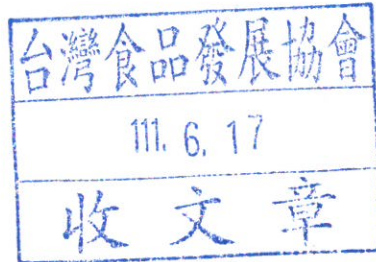 台灣食品發展協會
111. 6. 17
收文章